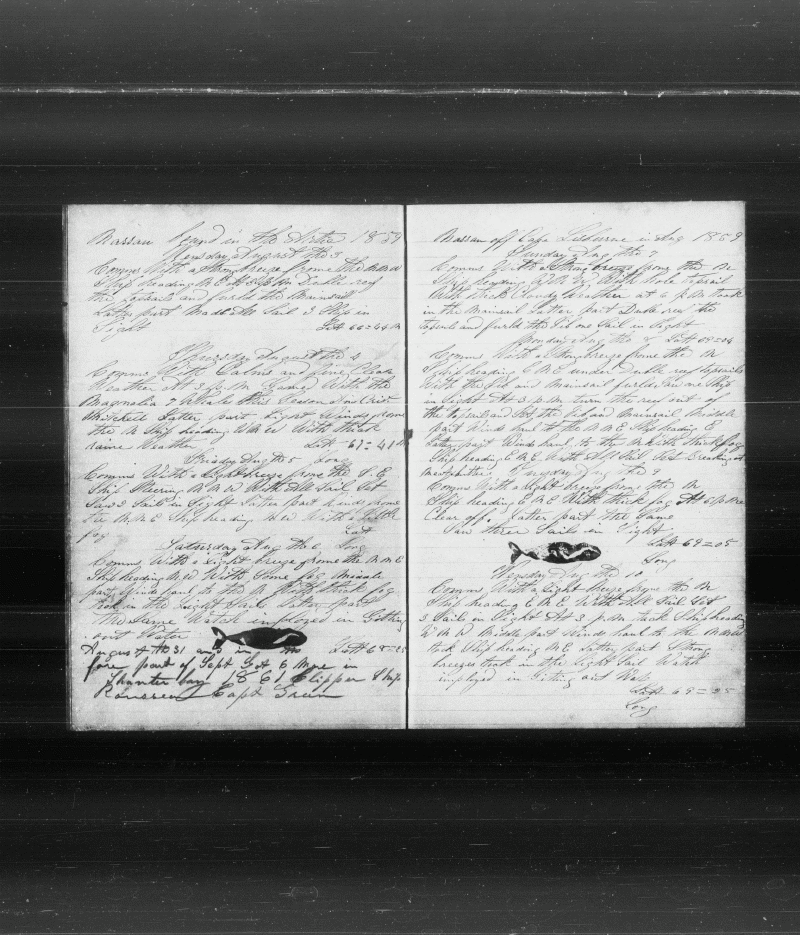 Nassau bound in the Artic 1859
Wensday August the 3
Comms With a Strong breeze frome the N N W
Ship heading N E At 3 P M Duble reef
the topsails and furld the Mainsail
Latter part Made All Sail 3 Ship in
Sight Latt 66=44 N
Thursday August the 4
Comms With Calms and fine Clear
Weather At 3 p. m. Gamed With the
Magnolia 7 Whales this Season
Mitchell Latter part Light Winds frome
the N Ship heading W N W With thick
raine Weather Latt 67=41 N
Friday Aug the 5 Long
Comms With a Light breeze frome the S E
Ship Steering N N W With All Sail Set
Saw 3 Sail in Sight Latter part Winds frome
the N N E Ship heading N W With a little
fog Latt
Saturday Aug the 6 Long
Comms With a Light breeze frome the N N E
Ship heading N W With Some fog Middle
part Winds haul to the N thick fog
took in the Light Sails Latter part
the Same Watch imployed in Getting
out Water Latt 68=25
August the 31 and in the
fore part of Sept Got 6 More in
1861 Clipper Ship
Capt Green
Nassau off Cape Lisburne in Aug 1859
Sunday Aug the 7
Comms With a Strong breeze frome the N
Ship heading W N W With Hole topsail
With thick Cloudy Weather at 6 P M took
in the Mainsail Latter part Duble reef the
topsails and furld the Jib one Sail in Sight
Monday Aug the 8 Latt 68=04
Comms With a Strong breeze frome the N
Ship heading E N E under Duble reef topsails
With the Jib and Mainsail furld one Ship
in Sight At 3 P. M. turn the reef out of
the topsails and Set the Jib and Mainsail Middle
part Winds haul to the N N E Ship heading E
Latter part Winds haul to the N With thick fog
Ship heading E N E With All Sail Set
Tuesday Aug the 9
Comms With a Light breeze frome the N
Ship heading E N E With thick fog At 6 P M
Clear off. Latter part the Same
Saw three Sails in Sight
Latt 69=05
Long
Wensday Aug the 10
Comms With a Light breeze frome the N
Ship heading E N E With All Sail Set
3 Sails in Sight At 3 p. m. tack Ship heading
W N W Middle part Winds haul to the N N W
tack Ship heading N E Latter part Strong
breezes took in the Light Sail Watch
imployed in Giting out
Latt 69=25
Long